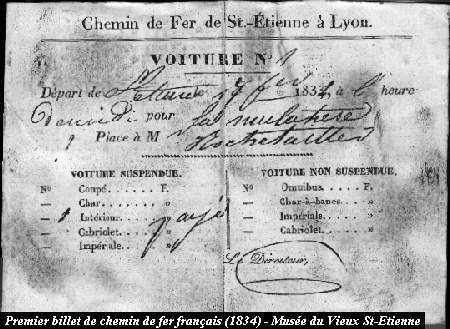 Chemin de Fer de St.-Étienne à Lyon.
VOITURE N.° 1
Départ de le 1834, à l' heure
pour la mulatière
9 Place à M Rochetaillée
VOITURE SUSPENDUE.
N.° Coupé....... F.
— Char........ »
— 1 Intérieur..... » payé
— Cabriolet..... »
Impériale.... »
VOITURE NON SUSPENDUE.
N.° Omnibus..... F.
— Char-à-bancs... »
— Impériale..... »
— Cabriolet..... »
Le Directeur,
Premier billet de chemin de fer français (1834) - Musée du Vieux St-Etienne